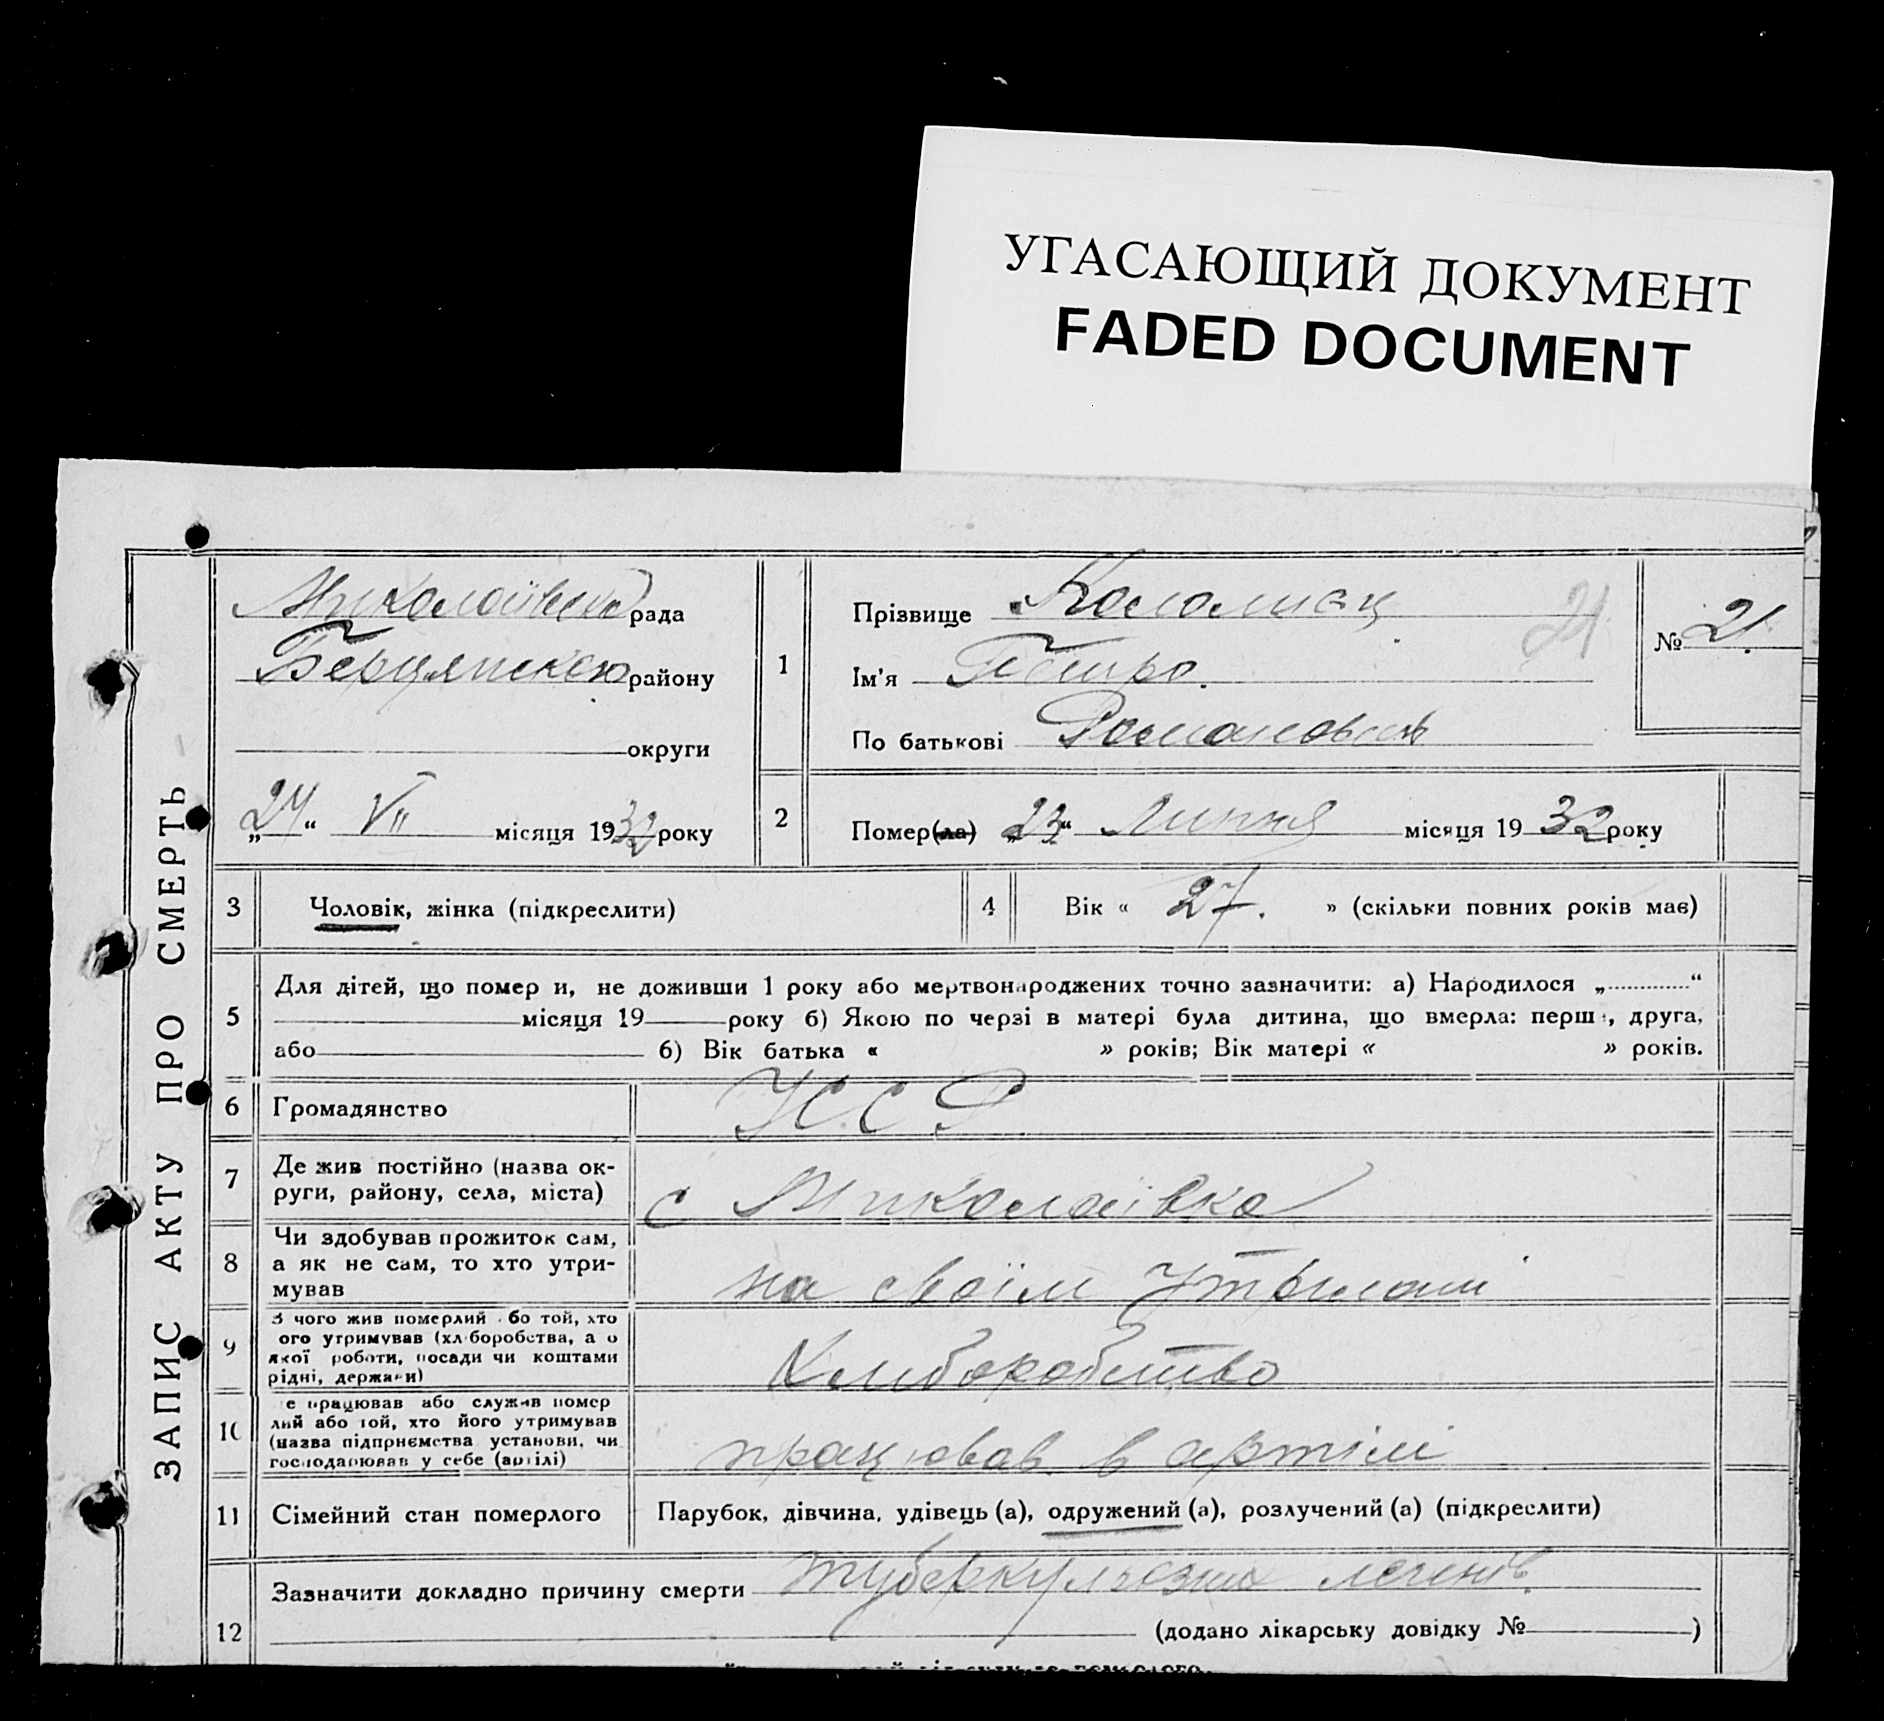 УГАСАЮЩИЙ ДОКУМЕНТ
FADED DOCUMENT
ЗАПИС АКТУ ПРО СМЕРТЬ
Миколаївська рада
Бердянського району
округи
„24“ VII місяця 1932 року
1
Прізвище Коломиєц
Ім'я Петро.
По батькові Романович
21
№ 21.
2
Помер(ла) „23“ Липня місяця 1932 року
3 Чоловік, жінка (підкреслити)
4 Вік « 27. » (скільки повних років має)
5
Для дітей, що помер и, не доживши 1 року або мертвонароджених точно зазначити: а) Народилося „ “
місяця 19 року б) Якою по черзі в матері була дитина, що вмерла: перш , друга,
або б) Вік батька « » років; Вік матері « » років.
6 Громадянство У.С.С.Р
7
Де жив постійно (назва ок-
руги, району, села, міста)
с Миколаївка
8
Чи здобував прожиток сам,
а як не сам, то хто утри-
мував
на своїм утрімані
9
З чого жив померлий бо той, хто
ого утримував (хл боробства, а о
якої роботи, посади чи коштами
рідні, держави)
Хліборобство
10
е працював або служив помер
лий або той, хто його утримував
(назва підприємства установи, чи
господарював у себе (артілі)
працював в артілі
11 Сімейний стан померлого Парубок, дівчина, удівець (а), одружений (а), розлучений (а) (підкреслити)
12
Зазначити докладно причину смерти туберкульозних легенів.
(додано лікарську довідку № )